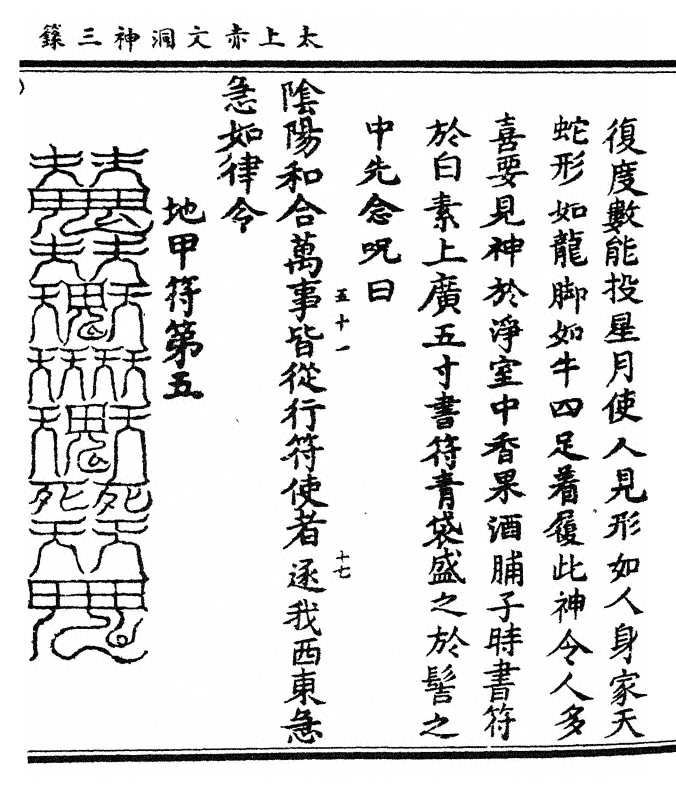 太上赤文洞神三籙
復度數能投星月使人見形如人身家天
蛇形如龍脚如牛四足着履此神令人多
喜要見神於淨室中香果酒脯子時書符
於白素上廣五寸書符青袋盛之於髻之
中先念呪曰
五十一
十七
陰陽和合萬事皆從行符使者逐我西東急
急如律令
地甲符第五